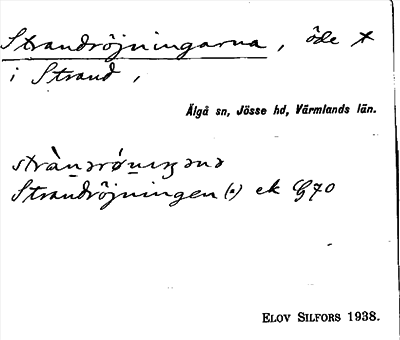 Strandröjningarna, öde
i Strand,
Älgå sn, Jösse hd, Värmlands län.
Strandröjningen (a) ek G70
ELOV SILFORS 1938.